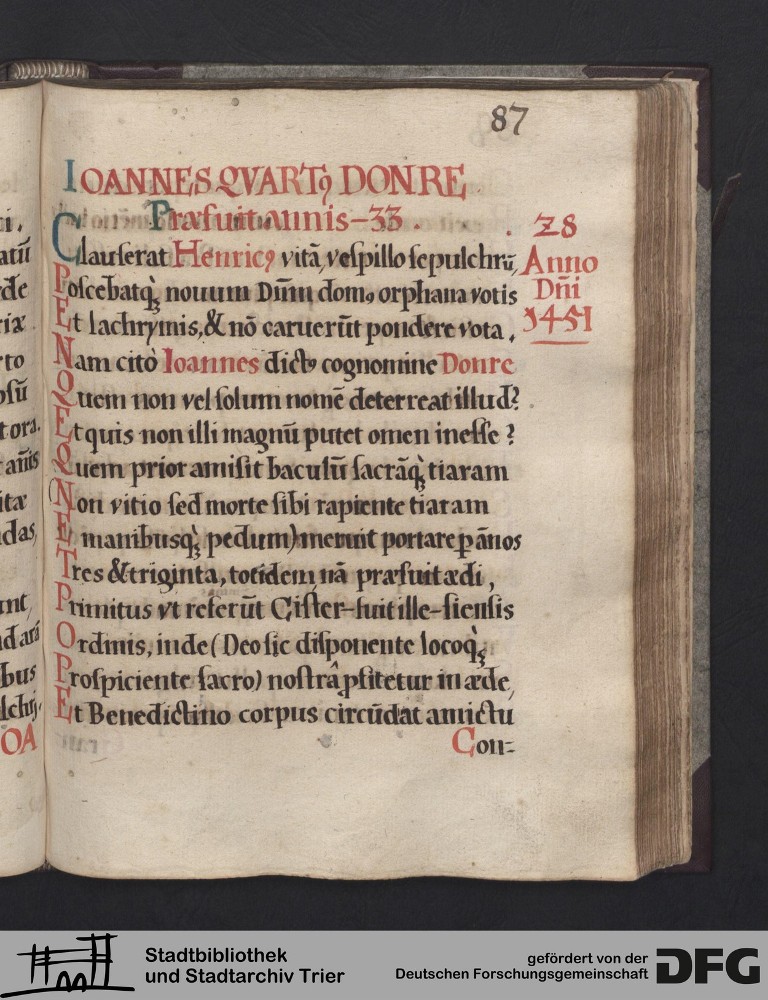 87
IOANNES QVARTꝰ DONRE
Præfuit annis-33.
. 28
Anno
Dñi
1451
Clauserat Henricꝰ vitã, vespillo sepulchrũ,
Poscebatqꝫ nouum Dñm domꝰ orphana votis
Et lachrymis, & nõ caruerũt pondere vota.
Nam citò Ioannes dictꝰ cognomine Donre
Quem non vel solum nomẽ deterreat illud?
Et quis non illi magnũ putet omen inesse?
Quem prior amisit baculũ sacrãqꝫ tiaram
(Non vitio sed morte sibi rapiente tiaram
E manibusqꝫ pedum) meruit portare ꝑ ãnos
Tres & triginta, totidem nã præfuit ædi,
Primitus vt referũt Cister-fuit ille-siensis
Ordinis, inde (Deo sic disponente locoqꝫ
Prospiciente sacro) nostrâ ꝓfitetur in æde,
Et Benedictino corpus circũdat amictu
Con=
ci.
atũ
rde
riæ
rto
psũ
t ora.
añis
itæ
das,
unt,
d arã
bus
lchrj.
OA
Stadtbibliothek
und Stadtarchiv Trier
gefördert von der
Deutschen Forschungsgemeinschaft
DFG